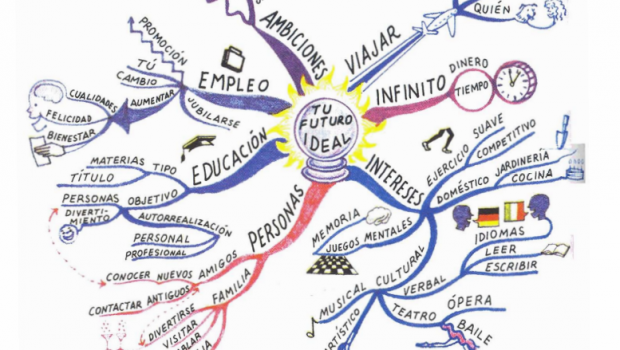 TU
FUTURO
IDEAL
AMBICIONES
VIAJAR
QUIÉN
INFINITO
DINERO
TIEMPO
INTERESES
EJERCICIO
SUAVE
COMPETITIVO
DOMÉSTICO
JARDINERÍA
COCINA
MEMORIA
JUEGOS MENTALES
CULTURAL
VERBAL
IDIOMAS
LEER
ESCRIBIR
MUSICAL
ARTÍSTICO
TEATRO
ÓPERA
BAILE
PERSONAS
AMIGOS
CONOCER NUEVOS
CONTACTAR ANTIGUOS
FAMILIA
DIVERTIRSE
VISITAR
EDUCACIÓN
TIPO
MATERIAS
TÍTULO
OBJETIVO
PERSONAS
DIVERTI-
MIENTO
AUTORREALIZACIÓN
PERSONAL
PROFESIONAL
EMPLEO
PROMOCIÓN
TÚ
CAMBIO
AUMENTAR
CUALIDADES
FELICIDAD
BIENESTAR
JUBILARSE